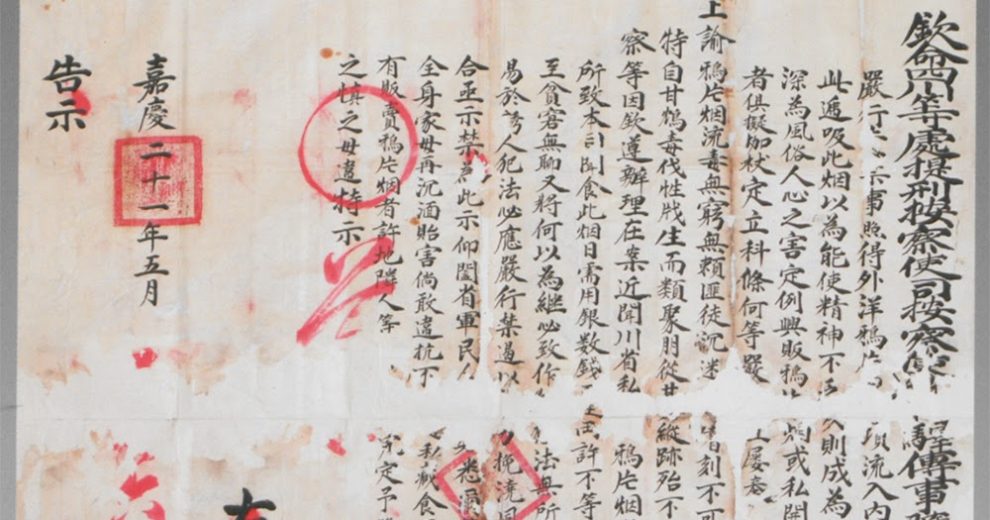 欽命四川等處提刑按察使司按察使 驛傳事
嚴 示事照得外洋鴉片 流入內
此遞吸此烟以為能使精神不 則成為
深為風俗人心之害定例興販鴉 或私開
者俱擬枷杖定立科條何等嚴 屢奉
上諭鴉片烟流毒無窮無賴匪徒沉迷 刻不可
特自甘鴆毒伐性戕生而類聚朋從其 縱跡殆不
察等因欽遵辦理在案近聞川省私 鴉片烟
所致本司聞食此烟日需用銀數錢 許不等
至貧窘無聊又將何以為繼必致作 法與所
易於誘人犯法必應嚴行禁遏以 挽澆風
合亟示禁為此示仰闔省軍民人 悉
全身家毋再沉湎貽害倘敢違抗不 私販食
有販賣鴉片烟者許地隣人等 究定予
之慎之毋違特示
右
嘉慶二十一年五月
告示